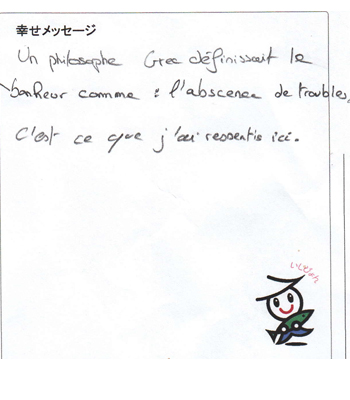 幸せメッセージ
Un philosophe Grec définissait le
bonheur comme : l'abscence de troubles,
C'est ce que j'ai ressentis ici.